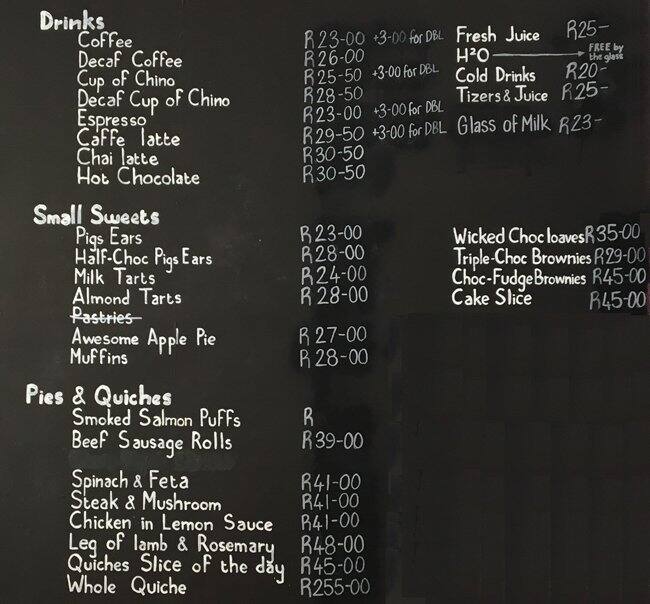 Drinks
Coffee R23-00 +3-00 for DBL
Decaf Coffee R26-00
Cup of Chino R25-50 +3-00 for DBL
Decaf Cup of Chino R28-50
Espresso R23-00 +3-00 for DBL
Caffe latte R29-50 +3-00 for DBL
Chai latte R30-50
Hot Chocolate R30-50
Fresh Juice R25-
H²O FREE by the glass
Cold Drinks R20-
Tizers & Juice R25-
Glass of Milk R23-
Small Sweets
Pigs Ears R23-00
Half-Choc Pigs Ears R28-00
Milk Tarts R24-00
Almond Tarts R28-00
Pastries
Awesome Apple Pie R27-00
Muffins R28-00
Wicked Choc loaves R35-00
Triple-Choc Brownies R29-00
Choc-Fudge Brownies R45-00
Cake Slice R45-00
Pies & Quiches
Smoked Salmon Puffs R
Beef Sausage Rolls R39-00
Spinach & Feta R41-00
Steak & Mushroom R41-00
Chicken in Lemon Sauce R41-00
Leg of lamb & Rosemary R48-00
Quiches Slice of the day R45-00
Whole Quiche R255-00